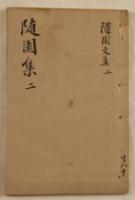 隨園文集 二
隨園集 二